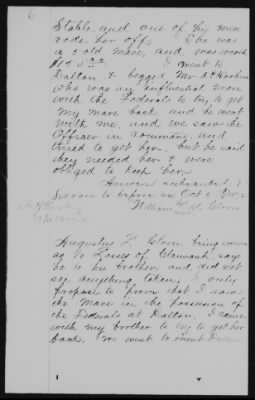 6
Stable, and one of thy men
rode her off. She was
a 5 old mare, and was worth
I went to
Dalton & begged Mr
who was an influential man
with the Federals to try to get
my mare back and he went
with me, and we saw the
Officer in command, and
tried to get her, but he said
they needed her & were
obliged to keep her.
Sworn to before me Oct
William
Augustus L. being sworn
as to Loyalty of Claimant, says
he is his brother, and did not
see anything taken, I only
propose to prove that I saw
the Mare in the possession of
the Federals at Dalton, I came
with my brother to try to get her
back. We went to